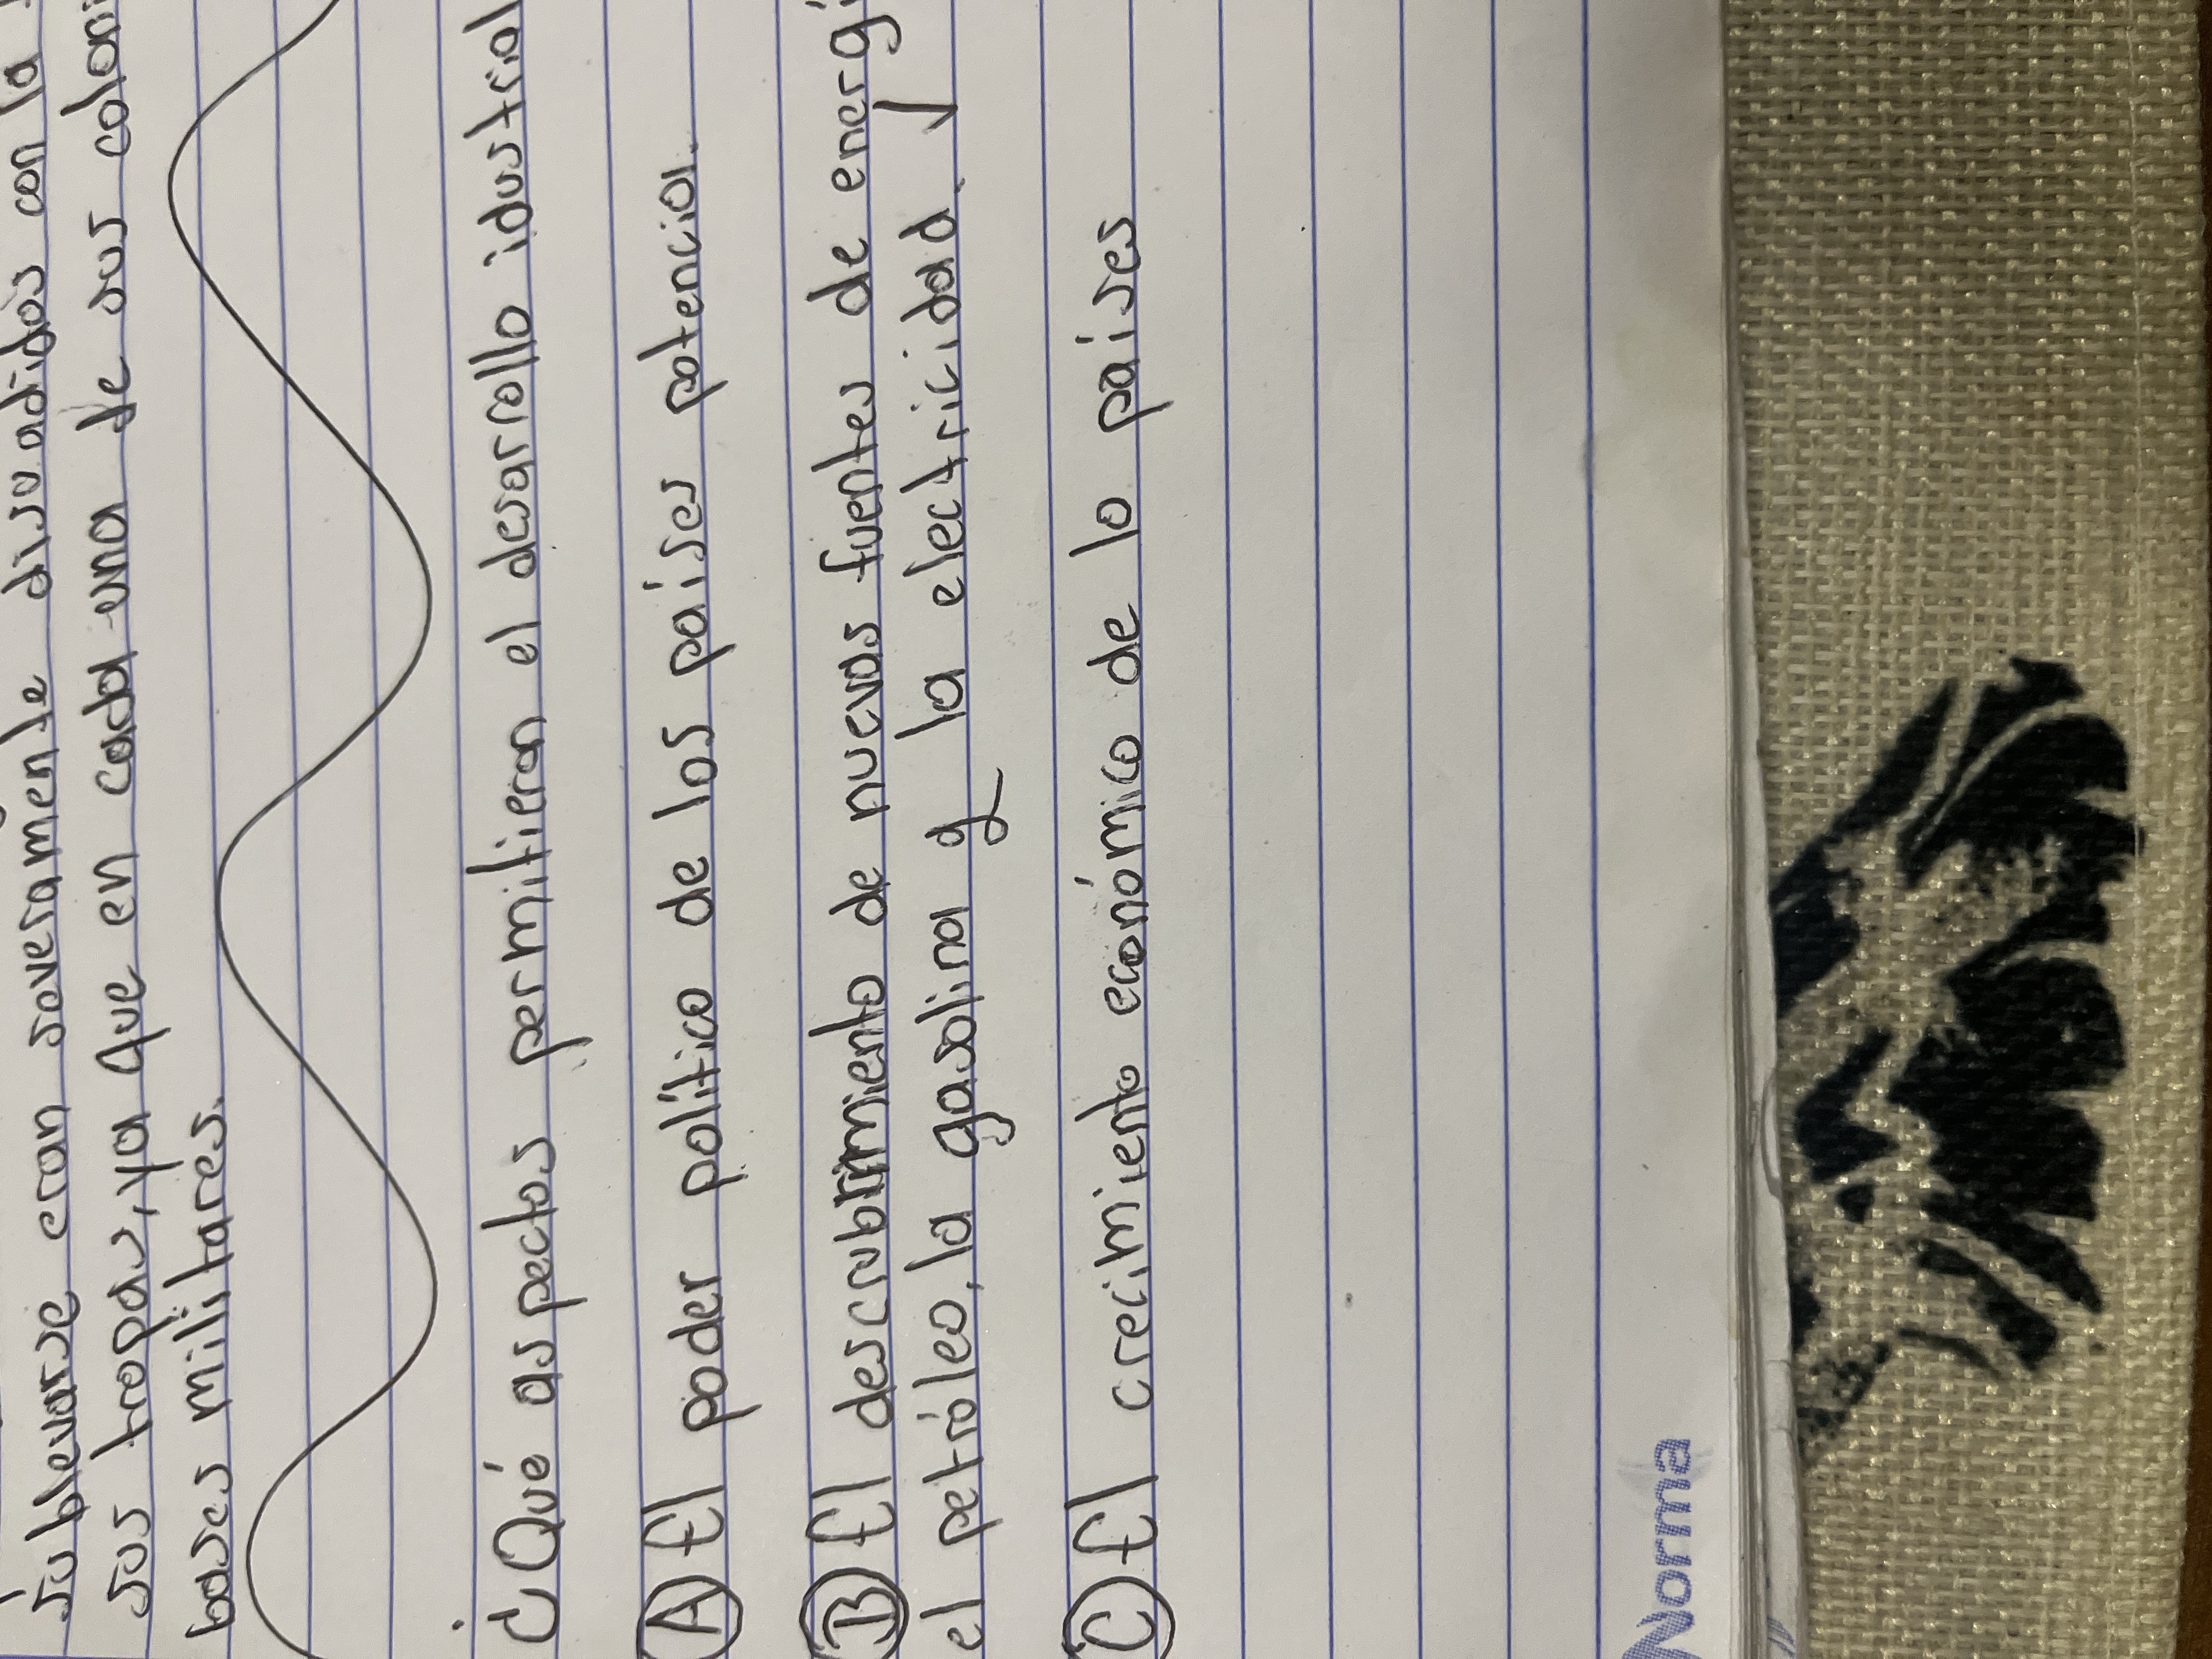 sublevarse eran severamente disuadidos con la
sus tropas, ya que en cada una de sus coloni
bases militares.
¿Qué aspectos permitieron el desarrollo idustrial
A El poder político de los países potencia.
B El descubrimiento de nuevas fuentes de energí
el petróleo, la gasolina y la electricidad. ✓
C El crecimiento económico de lo países
Norma